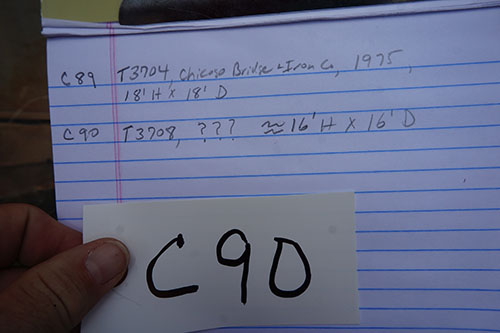 C89 T3704, Chicago Bridge & Iron Co, 1975,
18' H X 18' D
C90 T3708, ??? ≈ 16' H X 16' D
C90